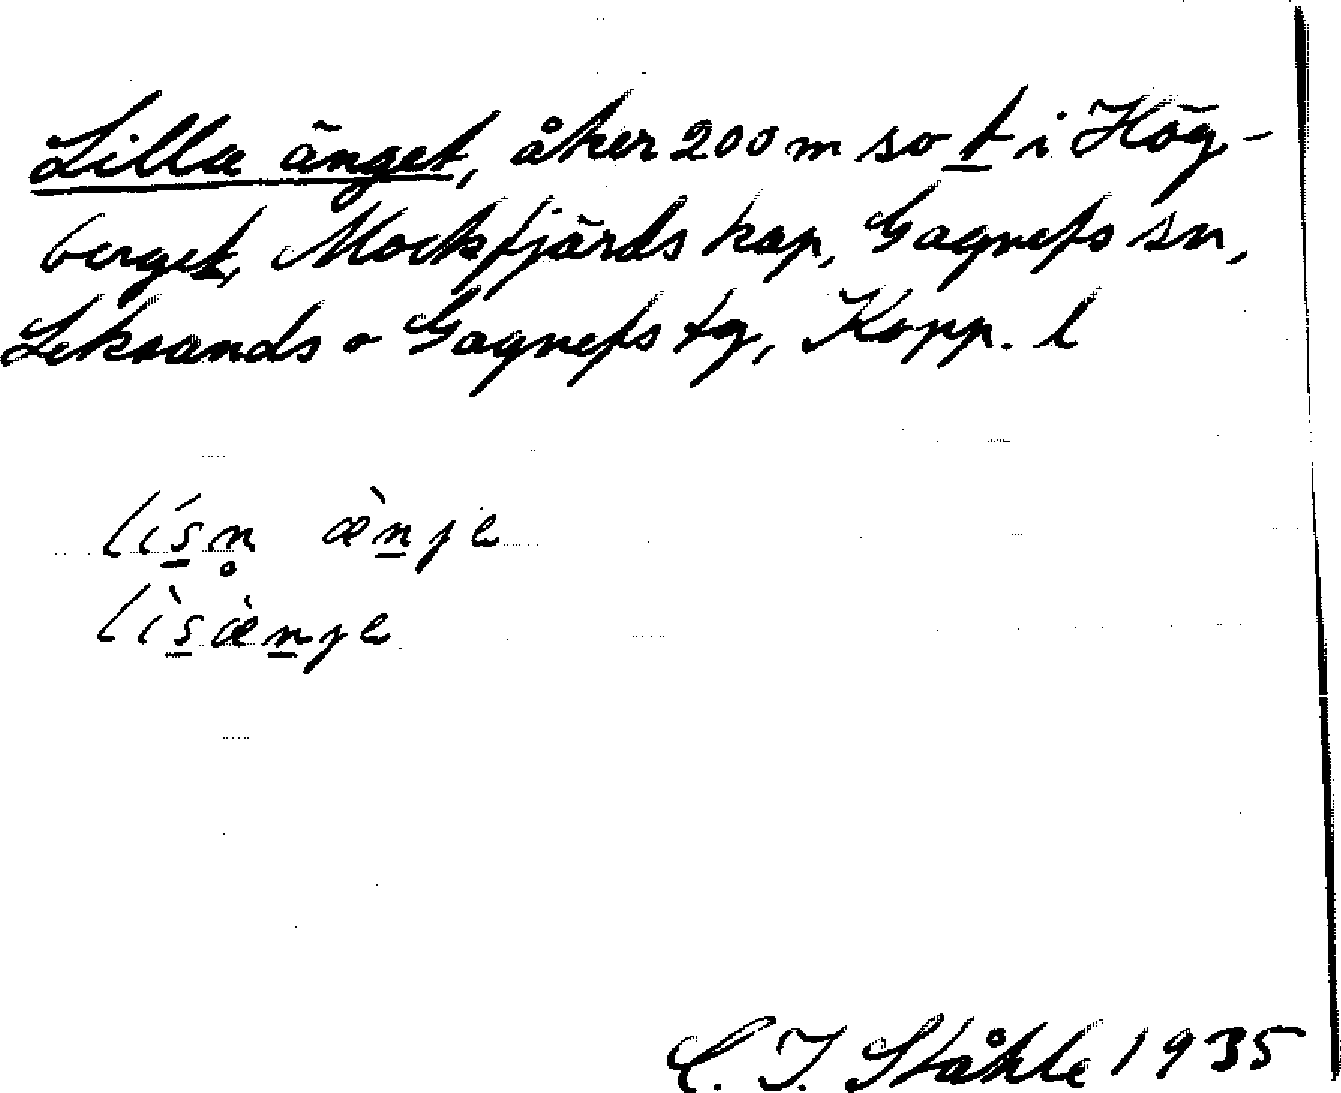 Lilla änget, åker 200 m so t i Hög-
berget, Mockfjärds kap, Gagnefs sn,
Leksands o Gagnefs tg, Kopp. l
lísn̥ æ̀nje
lìsæ̀nje
C. I. Ståhle 1935